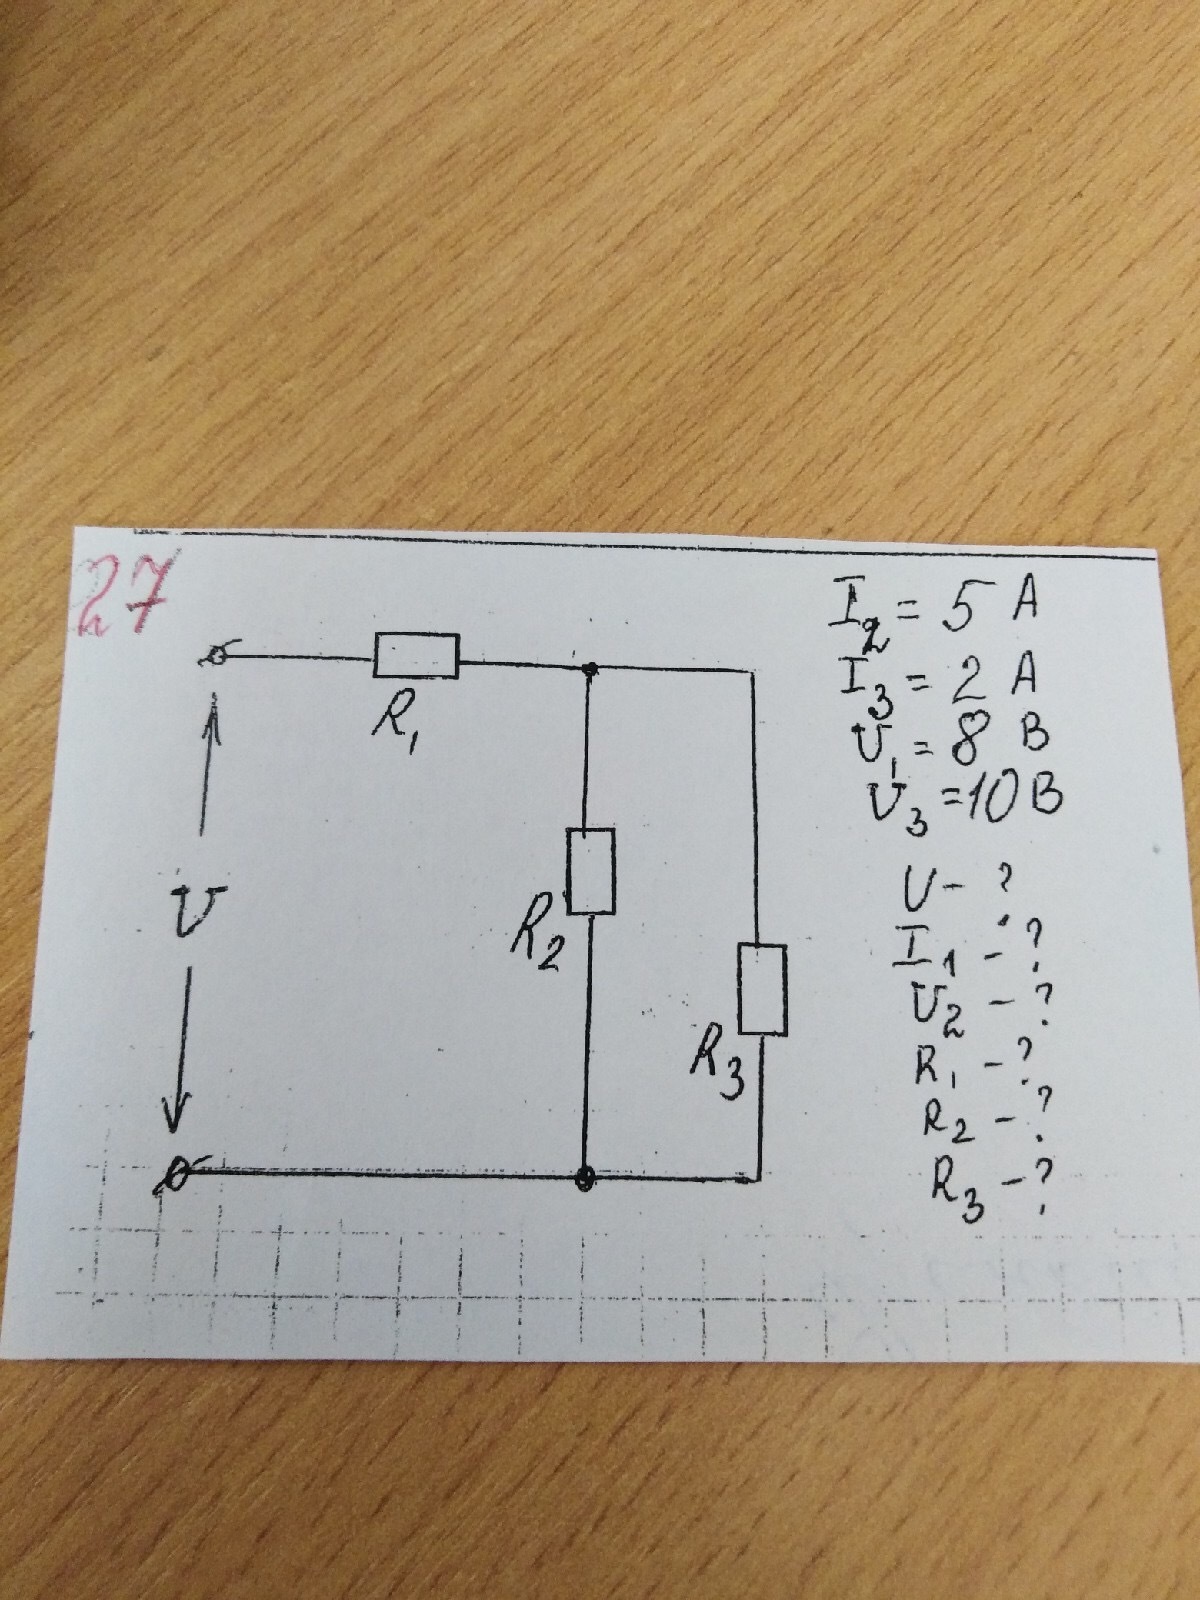 27
R₁
R₂
R₃
U
I₂ = 5 A
I₃ = 2 A
U₁ = 8 В
U₃ = 10 В
U - ?
I₁ - ?
U₂ - ?
R₁ - ?
R₂ - ?
R₃ - ?